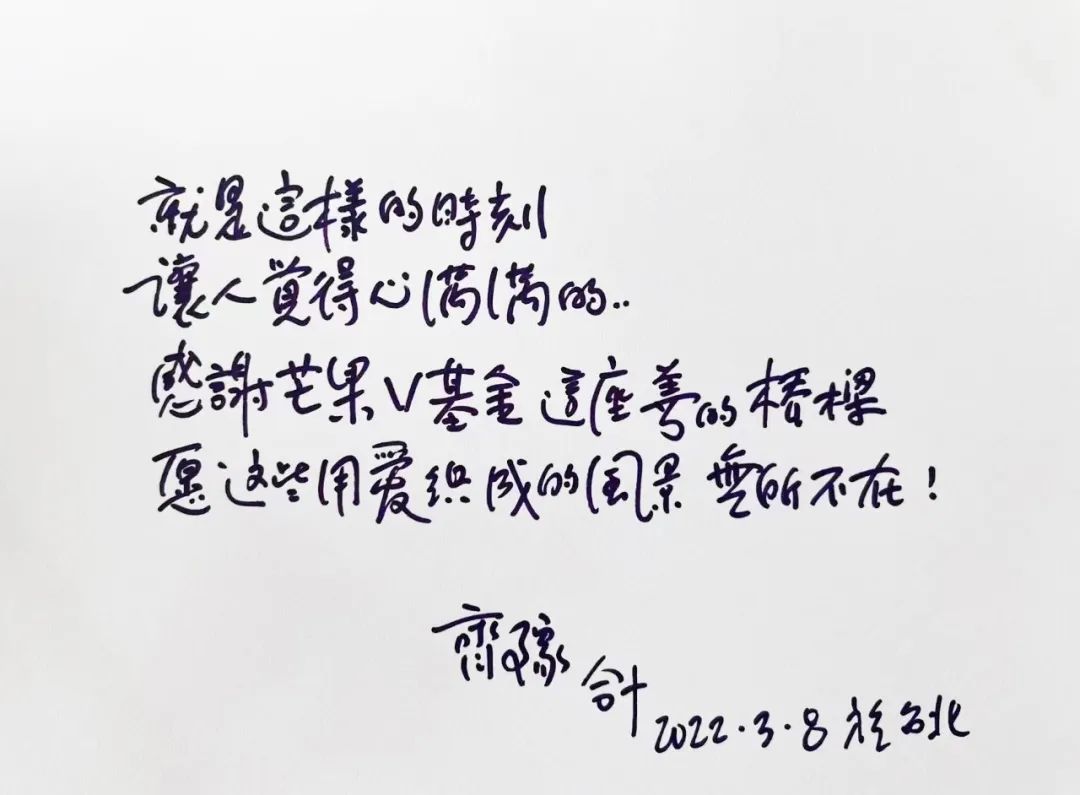 就是這樣的時刻
讓人覺得心滿滿的..
感謝芒果V基金這座善的橋樑
愿这些用爱织成的風景 無所不在！
齊豫 合十
2022.3.8 於台北